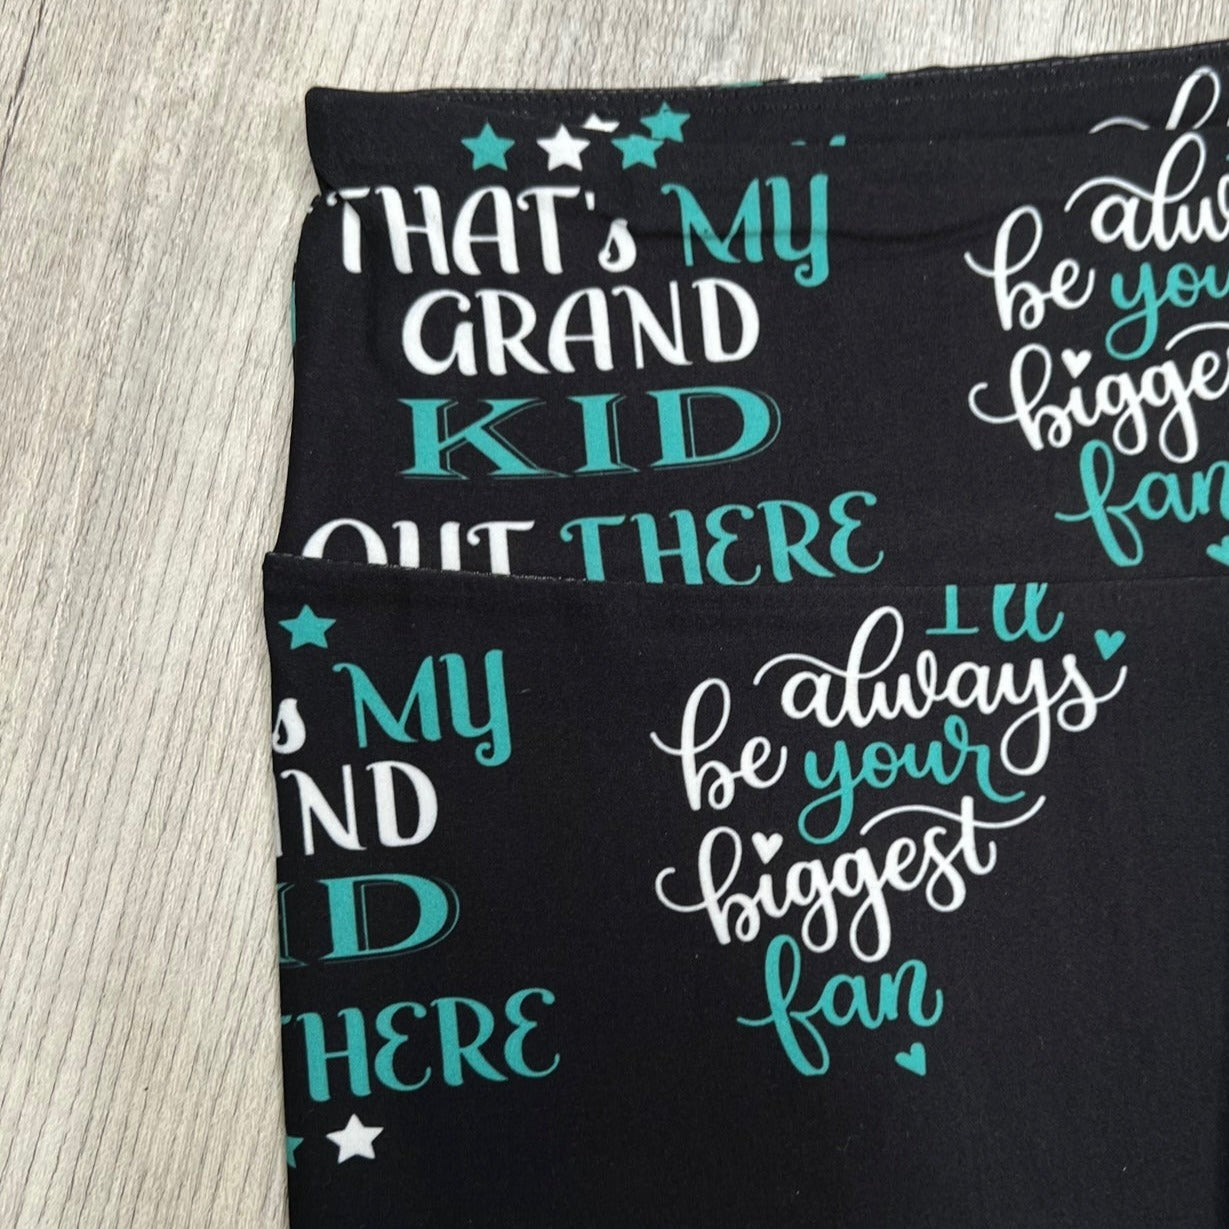 THAT's MY
GRAND
KID
OUT THERE
always
be your
bigge
fan
s MY
ND
ID
THERE
I'll
always
be your
biggest
fan